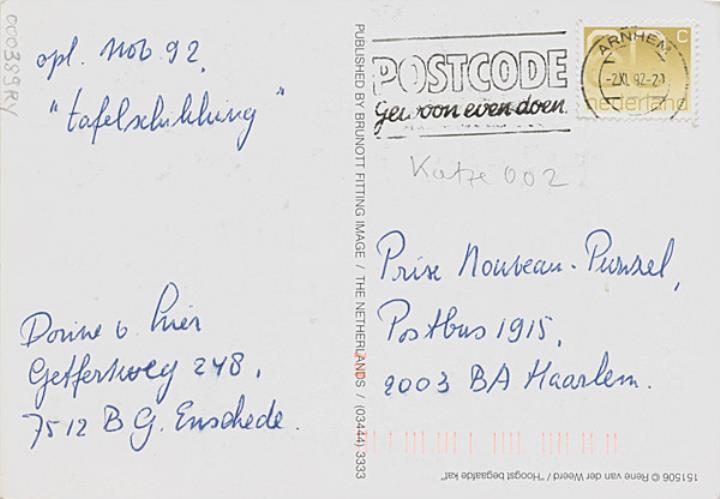 000389RY
opl. Nov. 92.
"tafelschikking"
Dorine v. Lier
Getfertweg 248,
7512 BG. Enschede.
PUBLISHED BY BRUNOTT FITTING IMAGE / THE NETHERLANDS / (03444) 3333
POSTCODE
Gewoon even doen
ARNHEM
-2.XI.92-21
c
nederland
Katze 002
Prix Nouveau-Punzel,
Postbus 1915,
2003 BA Haarlem.
151506 © Rene van der Weerd / "Hoogst begaafde kat"